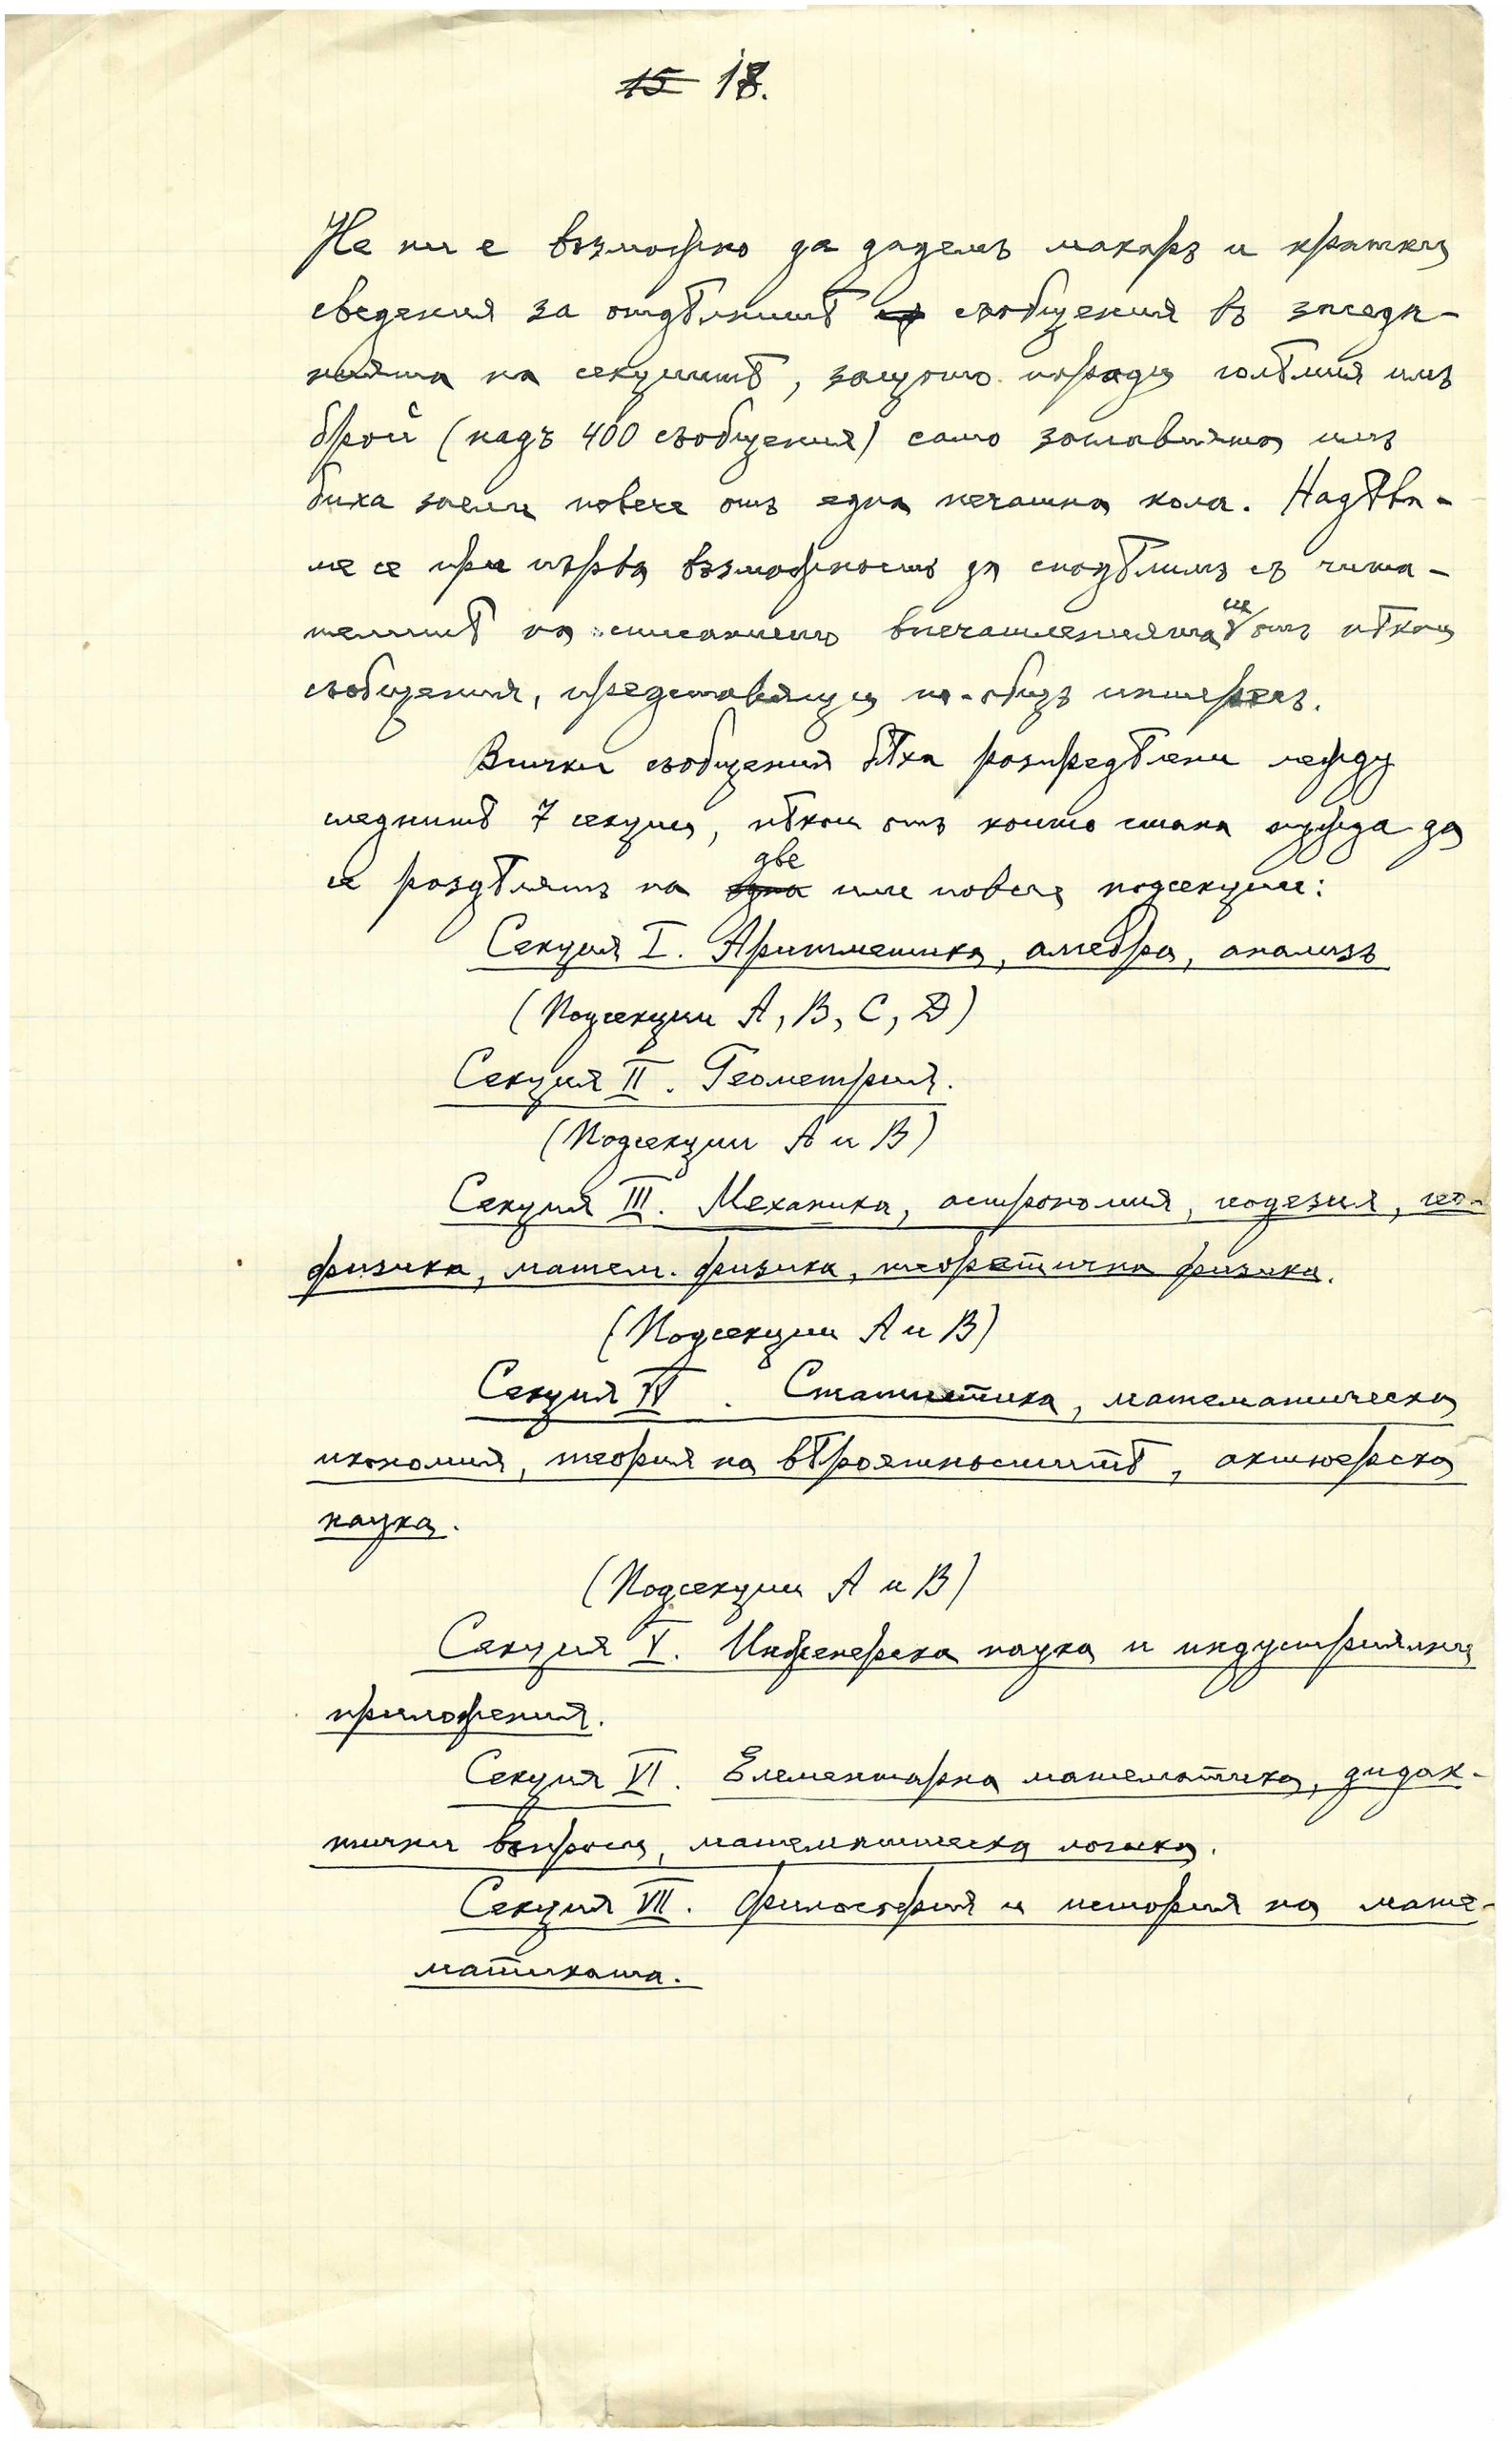 15 18.
Не ни е възможно да дадемъ макаръ и кратки
сведения за отдѣлнитѣ съобщения въ заседа-
нията на секциитѣ, защото поради голѣмия имъ
брой (надъ 400 съобщения) само заглавията имъ
биха заели повече отъ една печатна кола. Надѣва-
ме се при първа възможность да споделимъ съ чита-
телитѣ на списанието впечатленията си отъ нѣкои
съобщения, представящи по-общъ интересъ.
Всички съобщения бѣха разпредѣлени между
следнитѣ 7 секции, нѣкои отъ които стана нужда да
се раздѣлятъ на една две или повече подсекции:
Секция I. Аритметика, алгебра, анализъ
(Подсекции A, B, C, D)
Секция II. Геометрия.
(Подсекции A и B)
Секция III. Механика, астрономия, геодезия, гео-
физика, матем. физика, теоретична физика.
(Подсекции A и B)
Секция IV. Статистика, математическа
икономия, теория на вѣроятноститѣ, актюерска
наука.
(Подсекции A и B)
Секция V. Инженерска наука и индустриялни
приложения.
Секция VI. Елементарна математика, дидак-
тични въпроси, математическа логика.
Секция VII. Философия и история на мате-
матиката.